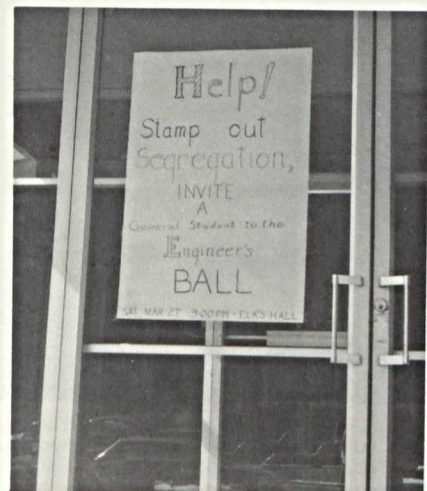 Help!
Stamp out
Segregation,
INVITE
A
General Student to the
Engineer's
BALL
SAT. MAR 27 9:00 PM - ELK'S HALL